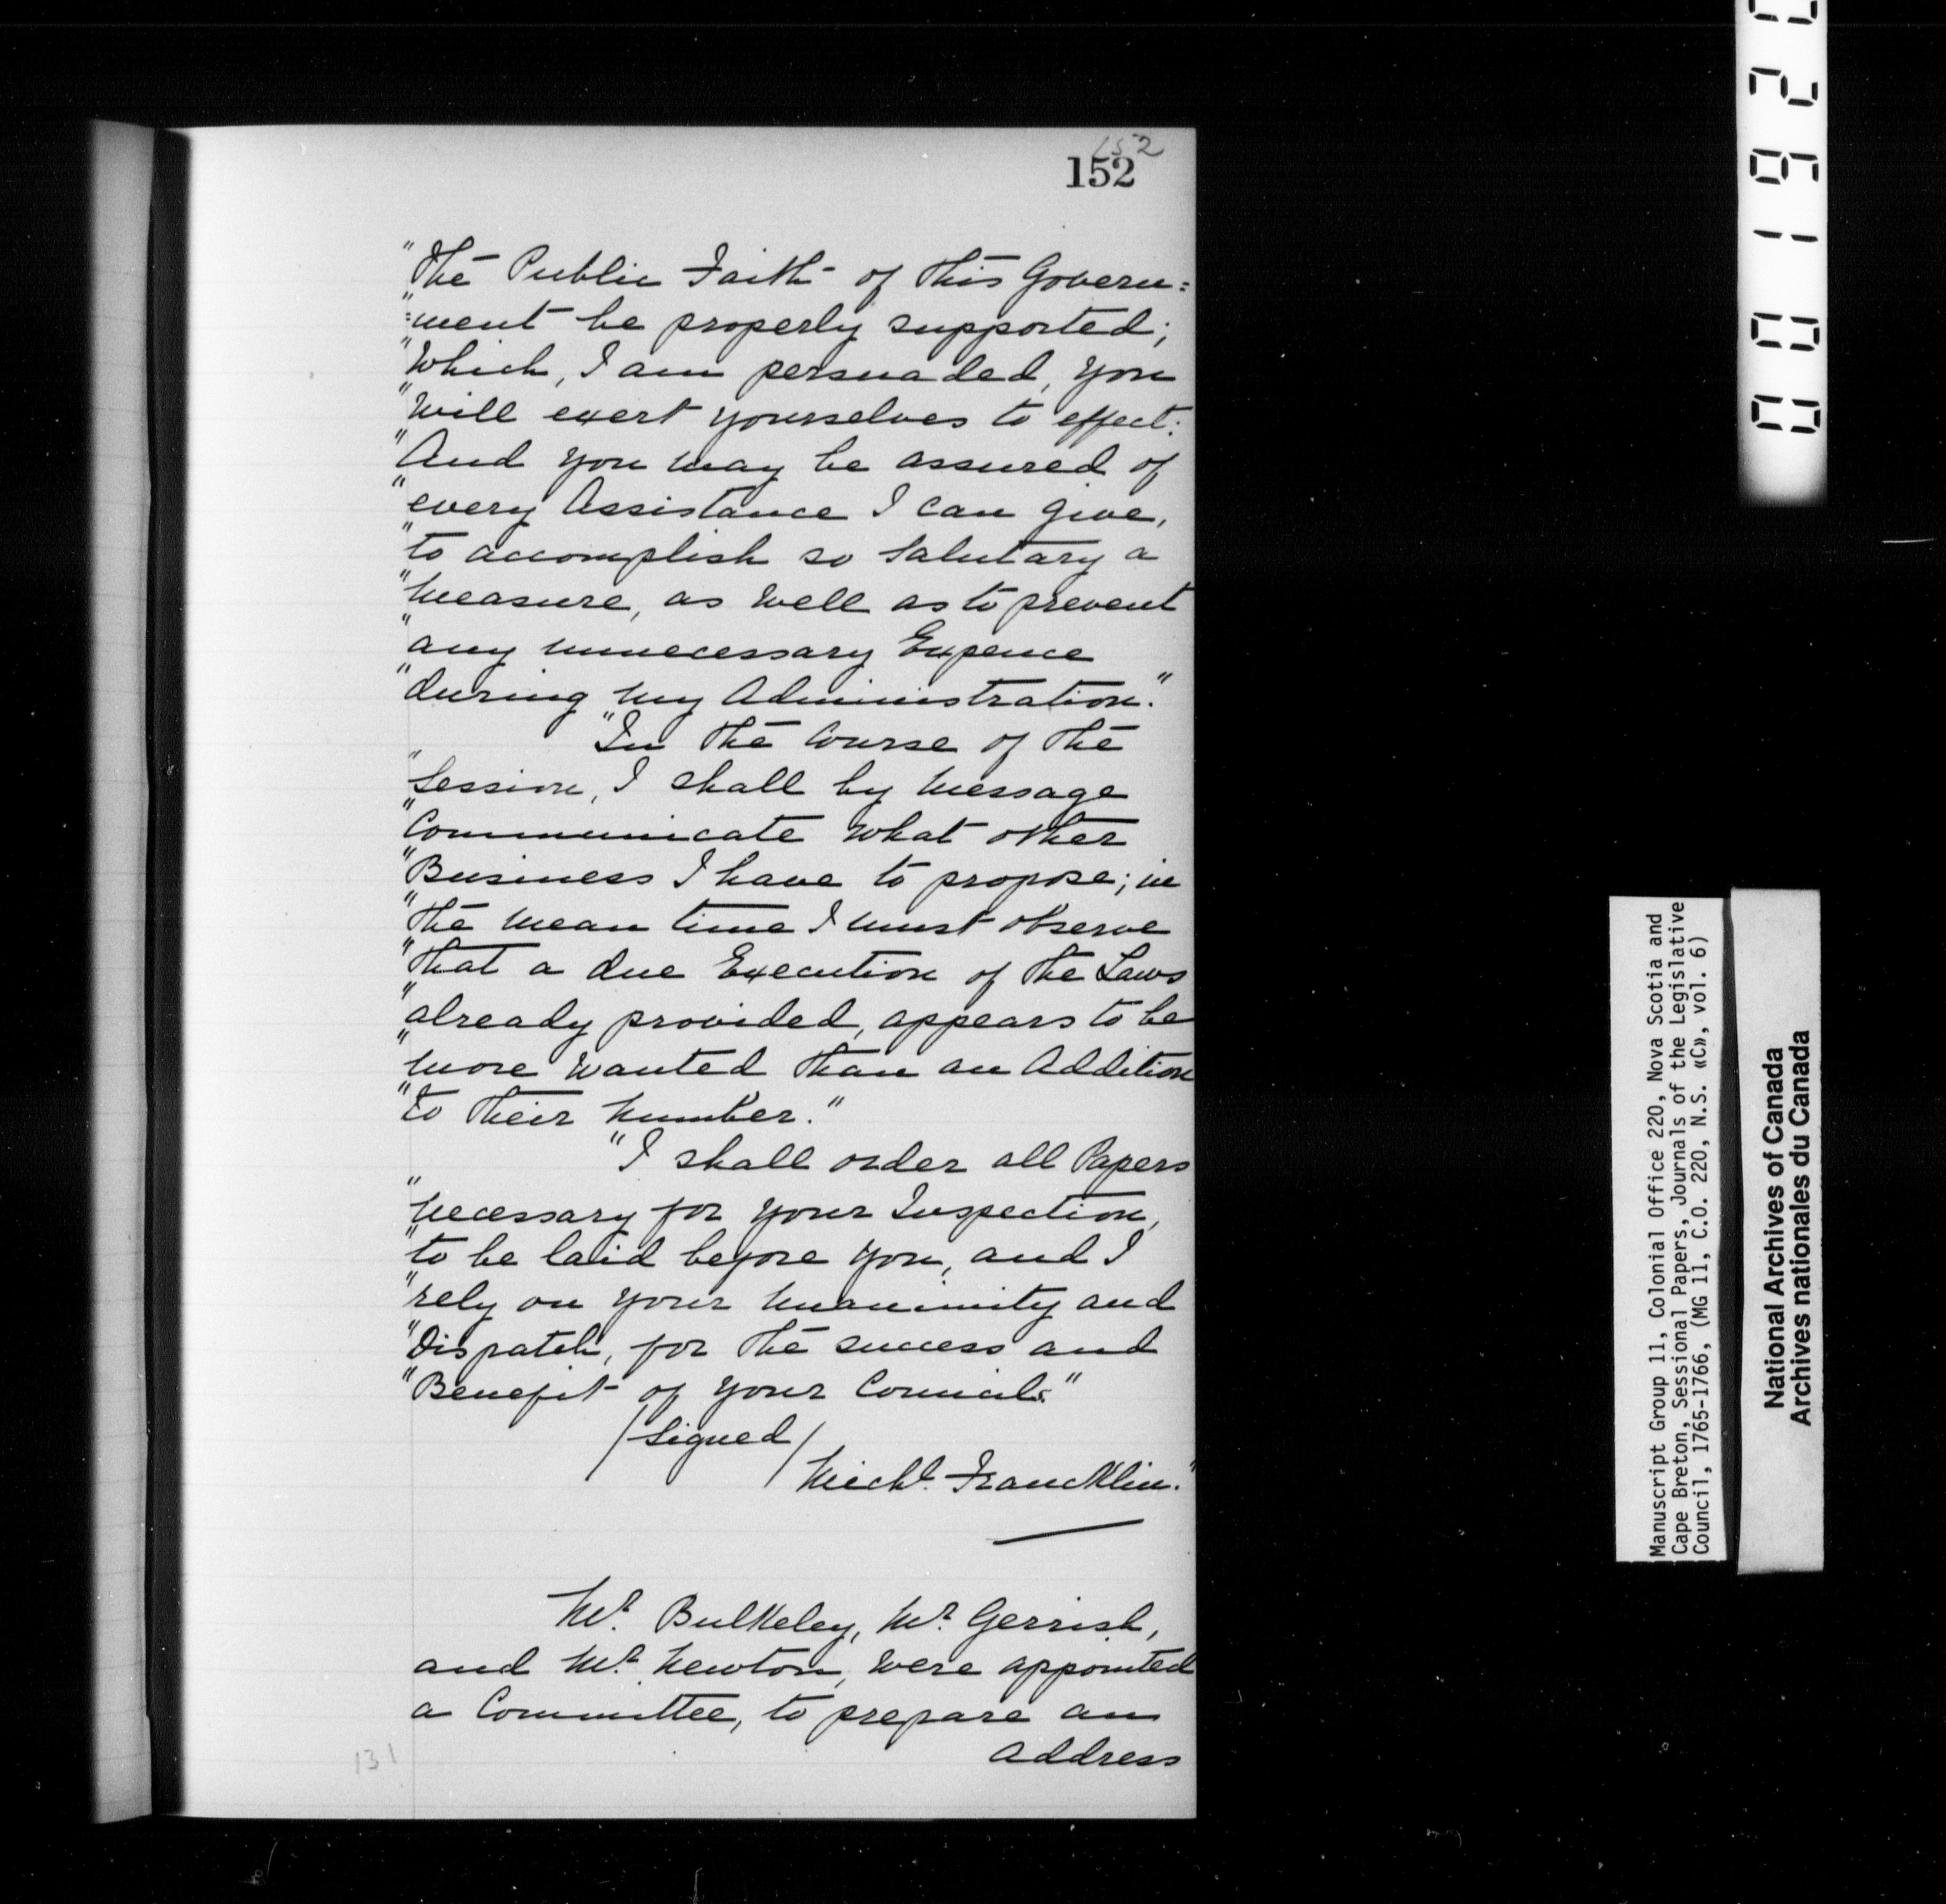 152
152
"The Public Faith of this Govern=
"=ment be properly supported;
"Which, I am persuaded, you
"Will exert yourselves to effect:
"And you may be assured of
"every Assistance I can give,
"to accomplish so Salutary a
"Measure, as well as to prevent
"any unnecessary Expence
"during my Administration."
"In the Course of the
"Session, I shall by Message
"Communicate what other
"Business I have to propose; in
"the mean time I must observe
"that a due Execution of the Laws
"already provided, appears to be
"more wanted than an Addition
"to their Number."
"I shall order all Papers
"necessary for your Inspection,
"to be laid before you, and I
"rely on your Unanimity and
"Dispatch, for the success and
"Benefit of your Councils."
/Signed/
Michl. Francklin."
Mr. Bulkeley, Mr. Gerrish,
and Mr. Newton, were appointed
a Committee, to prepare an
address
131
Manuscript Group 11, Colonial Office 220, Nova Scotia and
Cape Breton, Sessional Papers, Journals of the Legislative
Council, 1765-1766, (MG 11, C.O. 220, N.S. «C», vol. 6)
National Archives of Canada
Archives nationales du Canada